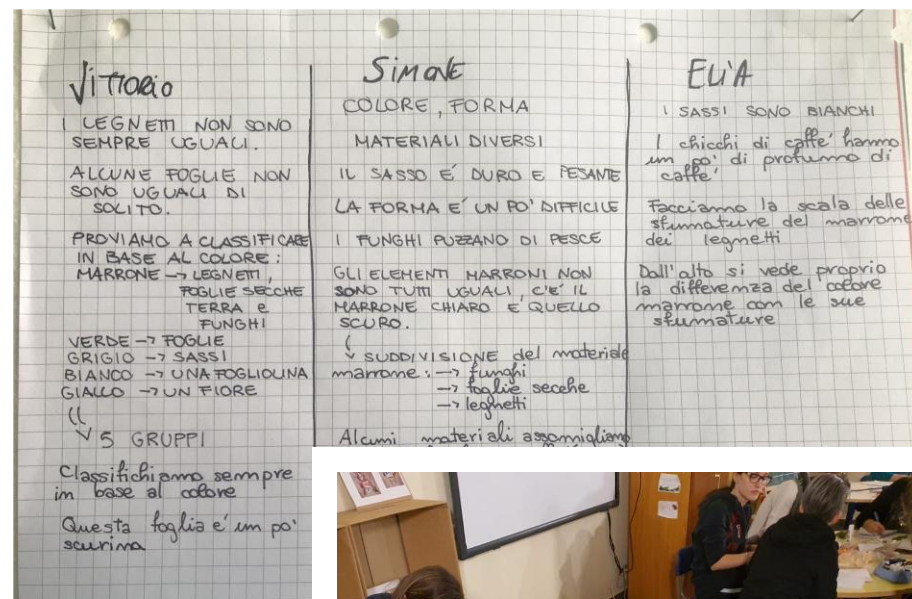 VITTORIO
I LEGNETTI NON SONO
SEMPRE UGUALI.
ALCUNE FOGLIE NON
SONO UGUALI DI
SOLITO.
PROVIAMO A CLASSIFICARE
IN BASE AL COLORE:
MARRONE → LEGNETTI,
FOGLIE SECCHE
TERRA e
FUNGHI
VERDE → FOGLIE
GRIGIO → SASSI
BIANCO → UNA FOGLIOLINA
GIALLO → UN FIORE
5 GRUPPI
Classifichiamo sempre
in base al colore
Questa foglia é un po'
scurina
SIMONE
COLORE, FORMA
MATERIALI DIVERSI
IL SASSO É DURO E PESANTE
LA FORMA E' UN PO' DIFFICILE
I FUNGHI PUZZANO DI PESCE
GLI ELEMENTI MARRONI NON
SONO TUTTI UGUALI, C'E' IL
MARRONE CHIARO E QUELLO
SCURO.
SUDDIVISIONE del materiale
marrone: → funghi
→ foglie secche
→ legnetti
Alcuni materiali assomigliano
ELIA
I SASSI SONO BIANCHI
I chicchi di caffe' hanno
un po' di profumo di
caffe'
Facciamo la scala delle
sfumature del marrone
dei legnetti
Dall'alto si vede proprio
la differenza del colore
marrone con le sue
sfumature